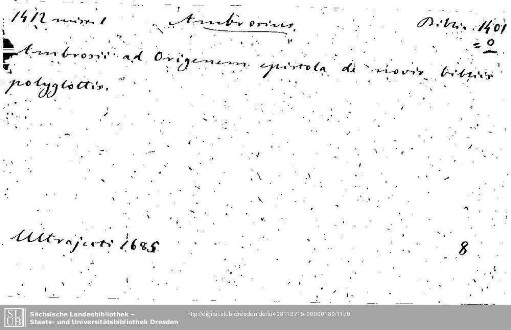 1412 misc 1 Ambrosius. Biblia 1401
= 0
Ambrosii ad Origenem epistola de novis bibliis
polyglottis.
Ultrajecti 1685 8
Sächsische Landesbibliothek –
Staats- und Universitätsbibliothek Dresden